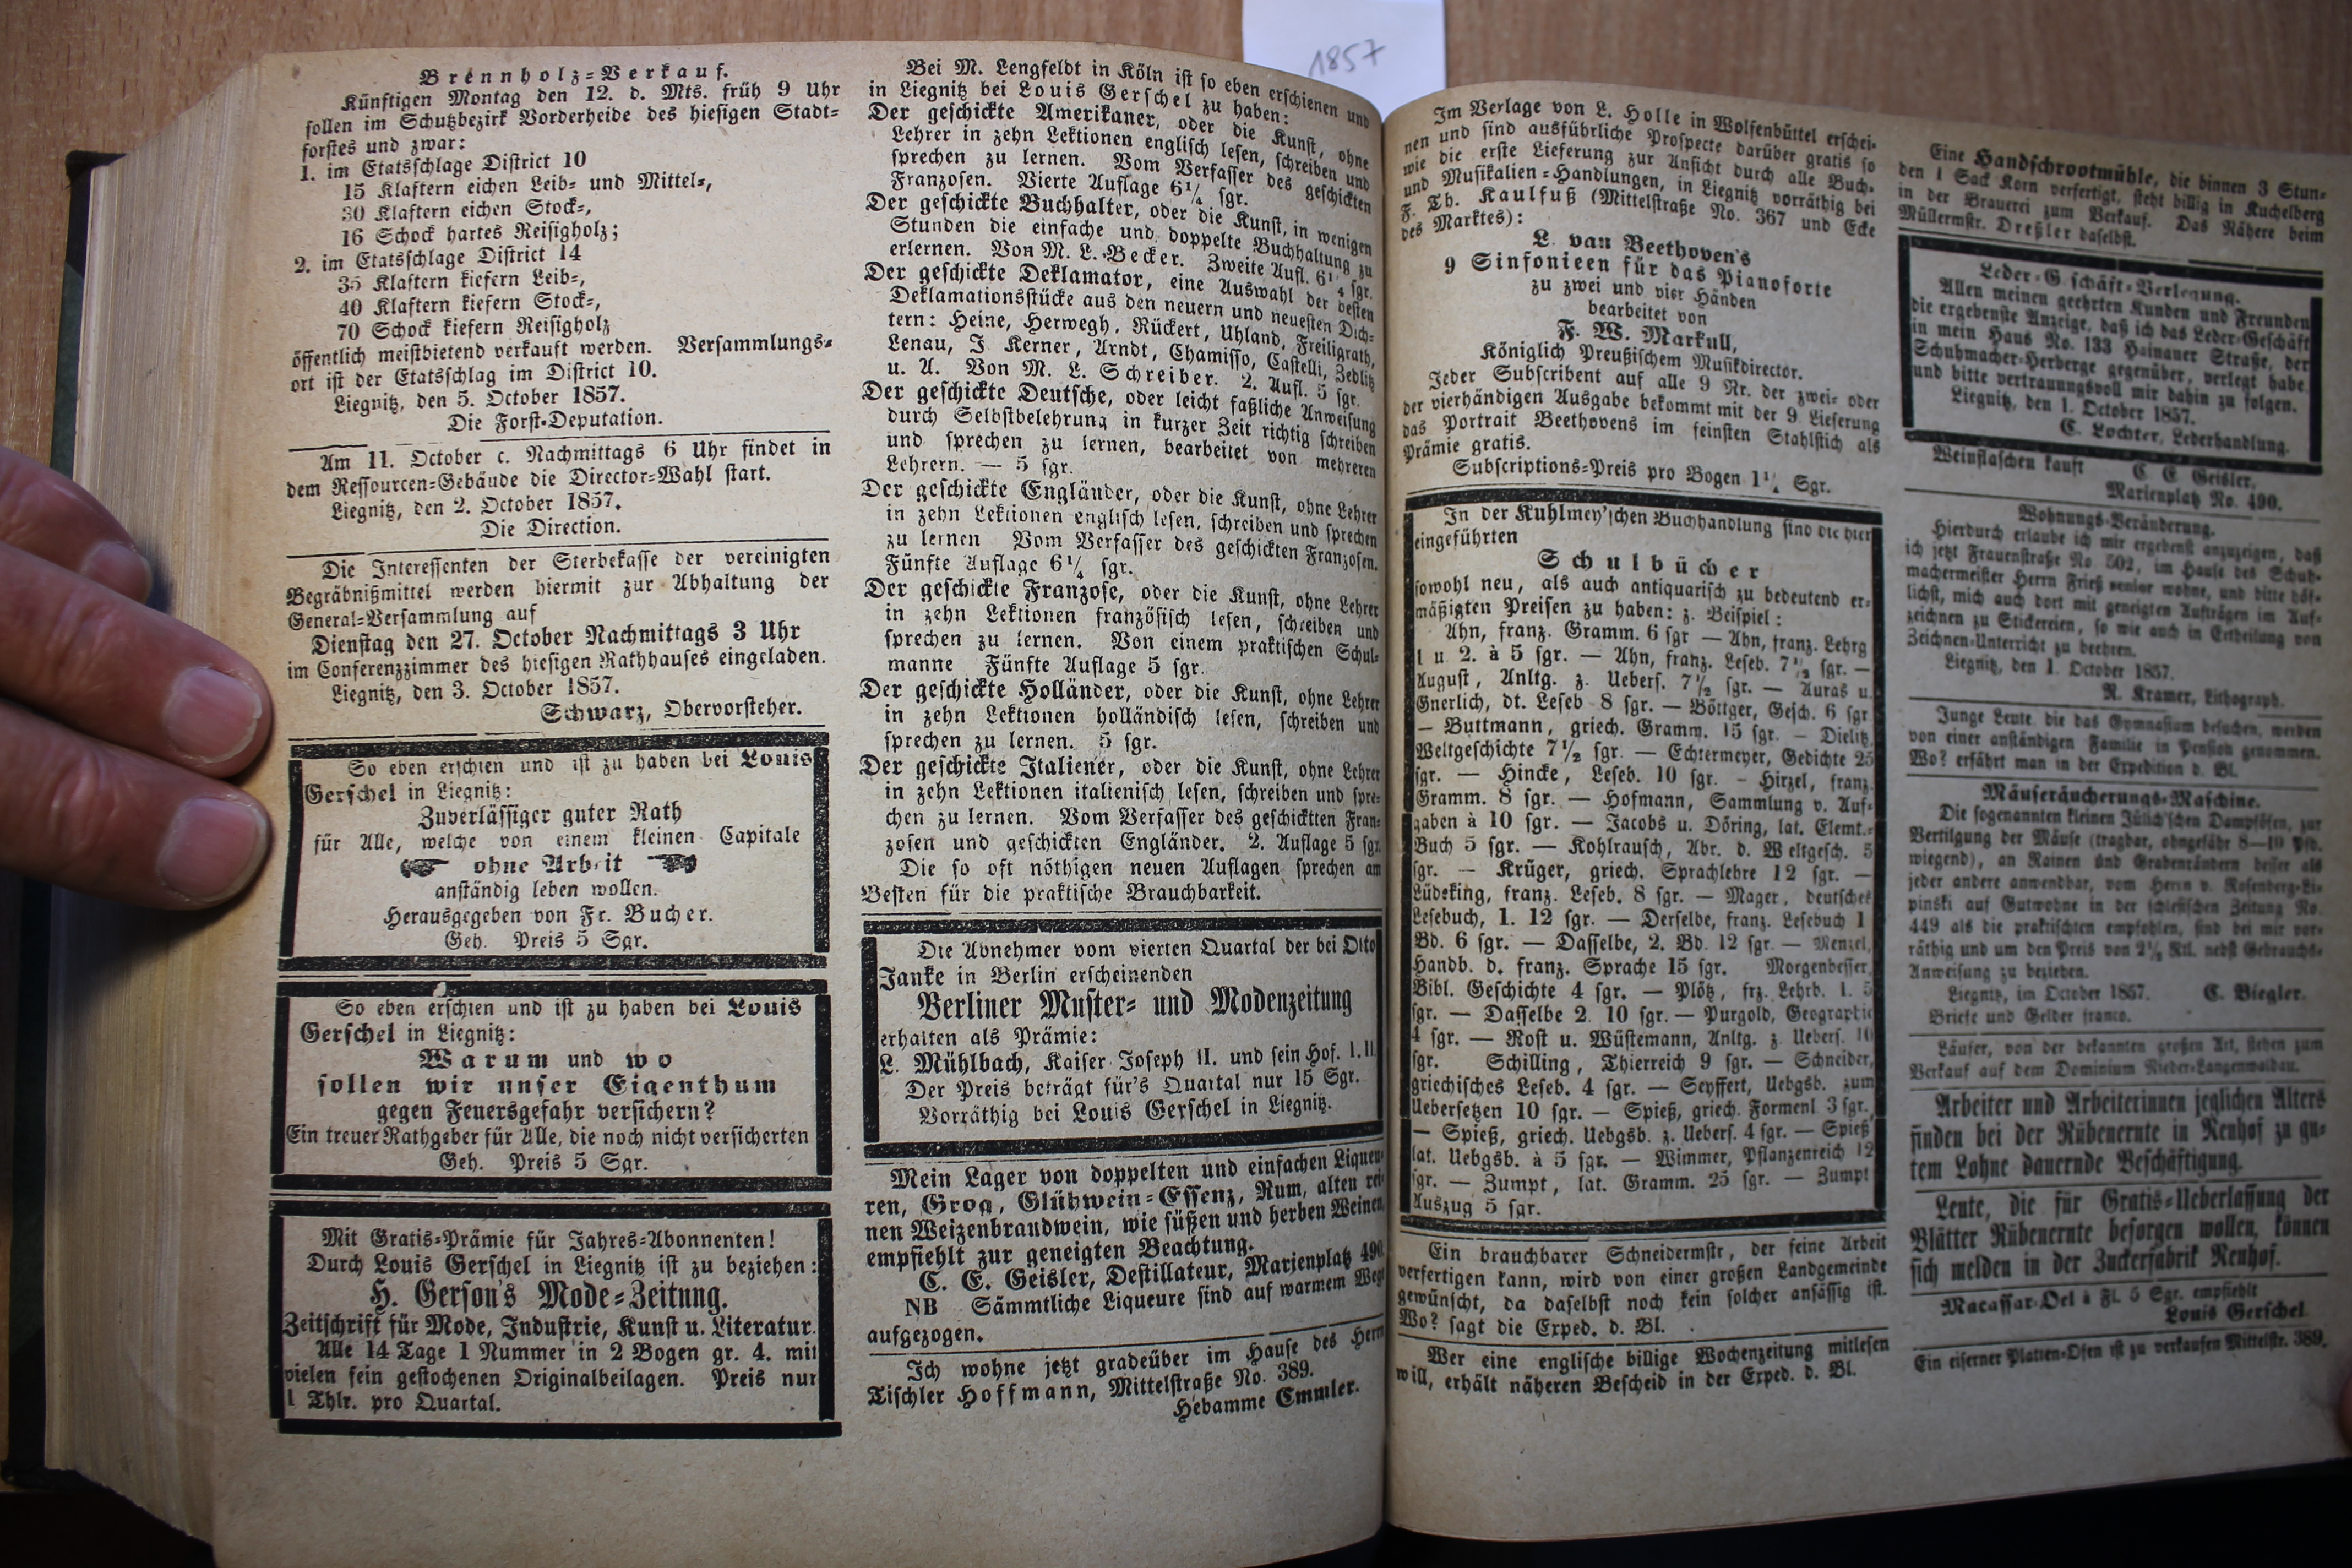 1857
Brennholz-Verkauf.
Künftigen Montag den 12. d. Mts. früh 9 Uhr
sollen im Schutzbezirk Vorderheide des hiesigen Stadt-
forstes und zwar:
1. im Etatsschlage District 10
15 Klaftern eichen Leib- und Mittel-,
30 Klaftern eichen Stock-,
16 Schock hartes Reisigholz;
2. im Etatsschlage District 14
35 Klaftern kiefern Leib-,
40 Klaftern kiefern Stock-,
70 Schock kiefern Reisigholz
öffentlich meistbietend verkauft werden. Versammlungs-
ort ist der Etatsschlag im District 10.
Liegnitz, den 5. October 1857.
Die Forst-Deputation.
Am 11. October c. Nachmittags 6 Uhr findet in
dem Ressourcen-Gebäude die Director-Wahl statt.
Liegnitz, den 2. October 1857.
Die Direction.
Die Interessenten der Sterbekasse der vereinigten
Begräbnißmittel werden hiermit zur Abhaltung der
General-Versammlung auf
Dienstag den 27. October Nachmittags 3 Uhr
im Conferenzzimmer des hiesigen Rathhauses eingeladen.
Liegnitz, den 3. October 1857.
Schwarz, Obervorsteher.
So eben erschien und ist zu haben bei Louis
Gerschel in Liegnitz:
Zuverlässiger guter Rath
für Alle, welche von einem kleinen Capitale
ohne Arbeit
anständig leben wollen.
Herausgegeben von Fr. Bucher.
Geh. Preis 5 Sgr.
So eben erschien und ist zu haben bei Louis
Gerschel in Liegnitz:
Warum und wo
sollen wir unser Eigenthum
gegen Feuersgefahr versichern?
Ein treuer Rathgeber für Alle, die noch nicht versicherten
Geh. Preis 5 Sgr.
Mit Gratis-Prämie für Jahres-Abonnenten!
Durch Louis Gerschel in Liegnitz ist zu beziehen:
H. Gerson's Mode-Zeitung.
Zeitschrift für Mode, Industrie, Kunst u. Literatur.
Alle 14 Tage 1 Nummer in 2 Bogen gr. 4. mit
vielen fein gestochenen Originalbeilagen. Preis nur
1 Thlr. pro Quartal.
Bei M. Lengfeldt in Köln ist so eben erschienen und
in Liegnitz bei Louis Gerschel zu haben:
Der geschickte Amerikaner, oder die Kunst, ohne
Lehrer in zehn Lektionen englisch lesen, schreiben und
sprechen zu lernen. Vom Verfasser des geschickten
Franzosen. Vierte Auflage 6¼ sgr.
Der geschickte Buchhalter, oder die Kunst, in wenigen
Stunden die einfache und doppelte Buchhaltung zu
erlernen. Von M. L. Becker. Zweite Aufl. 6¼ sgr.
Der geschickte Deklamator, eine Auswahl der besten
Deklamationsstücke aus den neuern und neuesten Dich-
tern: Heine, Herwegh, Rückert, Uhland, Freiligrath,
Lenau, J. Kerner, Arndt, Chamisso, Castelli, Zedlitz
u. A. Von M. L. Schreiber. 2. Aufl. 5 sgr.
Der geschickte Deutsche, oder leicht faßliche Anweisung
durch Selbstbelehrung in kurzer Zeit richtig schreiben
und sprechen zu lernen, bearbeitet von mehreren
Lehrern. — 5 sgr.
Der geschickte Engländer, oder die Kunst, ohne Lehrer
in zehn Lektionen englisch lesen, schreiben und sprechen
zu lernen Vom Verfasser des geschickten Franzosen.
Fünfte Auflage 6¼ sgr.
Der geschickte Franzose, oder die Kunst, ohne Lehrer
in zehn Lektionen französisch lesen, schreiben und
sprechen zu lernen. Von einem praktischen Schul-
manne Fünfte Auflage 5 sgr.
Der geschickte Holländer, oder die Kunst, ohne Lehrer
in zehn Lektionen holländisch lesen, schreiben und
sprechen zu lernen. 5 sgr.
Der geschickte Italiener, oder die Kunst, ohne Lehrer
in zehn Lektionen italienisch lesen, schreiben und spre-
chen zu lernen. Vom Verfasser des geschicktten Fran-
zosen und geschickten Engländer. 2. Auflage 5 sgr.
Die so oft nöthigen neuen Auflagen sprechen am
Besten für die praktische Brauchbarkeit.
Die Abnehmer vom vierten Quartal der bei Otto
Janke in Berlin erscheinenden
Berliner Muster- und Modenzeitung
erhalten als Prämie:
L. Mühlbach, Kaiser Joseph II. und sein Hof. I. II.
Der Preis beträgt für's Quartal nur 15 Sgr.
Vorräthig bei Louis Gerschel in Liegnitz.
Mein Lager von doppelten und einfachen Liqueu-
ren, Grog, Glühwein-Essenz, Rum, alten rei-
nen Weizenbrandwein, wie süßen und herben Weinen,
empfiehlt zur geneigten Beachtung.
C. E. Geisler, Destillateur, Marienplatz 490.
NB Sämmtliche Liqueure sind auf warmem Wege
aufgezogen.
Ich wohne jetzt gradeüber im Hause des Herrn
Tischler Hoffmann, Mittelstraße No. 389.
Hebamme Emmler.
Im Verlage von L. Holle in Wolfenbüttel erschei-
nen und sind ausführliche Prospecte darüber gratis so
wie die erste Lieferung zur Ansicht durch alle Buch-
und Musikalien-Handlungen, in Liegnitz vorräthig bei
F. Th. Kaulfuß (Mittelstraße No. 367 und Ecke
des Marktes):
L. van Beethoven's
9 Sinfonieen für das Pianoforte
zu zwei und vier Händen
bearbeitet von
F. W. Markull,
Königlich Preußischem Musikdirector.
Jeder Subscribent auf alle 9 Nr. der zwei- oder
der vierhändigen Ausgabe bekommt mit der 9 Lieferung
das Portrait Beethovens im feinsten Stahlstich als
Prämie gratis.
Subscriptions-Preis pro Bogen 1¼ Sgr.
In der Kuhlmey'schen Buchhandlung sind die hier
eingeführten
Schulbücher
sowohl neu, als auch antiquarisch zu bedeutend er-
mäßigten Preisen zu haben: z. Beispiel:
Ahn, franz. Gramm. 6 sgr — Ahn, franz. Lehrg
1 u. 2. à 5 sgr. — Ahn, franz. Leseb. 7½ sgr. —
August, Anltg. z. Uebers. 7½ sgr. — Auras u.
Gnerlich, dt. Leseb 8 sgr. — Böttger, Gesch. 6 sgr
— Buttmann, griech. Gramm. 15 sgr. — Dielitz,
Weltgeschichte 7½ sgr. — Echtermeyer, Gedichte 25
sgr. — Hincke, Leseb. 10 sgr. — Hirzel, franz.
Gramm. 8 sgr. — Hofmann, Sammlung v. Auf-
gaben à 10 sgr. — Jacobs u. Döring, lat. Elemt.-
Buch 5 sgr. — Kohlrausch, Abr. d. Weltgesch. 5
sgr. — Krüger, griech. Sprachlehre 12 sgr. —
Lüdeking, franz. Leseb. 8 sgr. — Mager, deutsches
Lesebuch, 1. 12 sgr. — Derselbe, franz. Lesebuch 1
Bd. 6 sgr. — Dasselbe, 2. Bd. 12 sgr. — Menzel,
Handb. d. franz. Sprache 15 sgr. Morgenbesser,
Bibl. Geschichte 4 sgr. — Plötz, frz. Lehrb. 1. 5
sgr. — Dasselbe 2. 10 sgr. — Purgold, Geographie
4 sgr. — Rost u. Wüstemann, Anltg. z. Uebers. 10
sgr. Schilling, Thierreich 9 sgr. — Schneider,
griechisches Leseb. 4 sgr. — Seyffert, Uebgsb. zum
Uebersetzen 10 sgr. — Spieß, griech. Formenl 3 sgr.
— Spieß, griech. Uebgsb. z. Uebers. 4 sgr. — Spieß
lat. Uebgsb. à 5 sgr. — Wimmer, Pflanzenreich 12
sgr. — Zumpt, lat. Gramm. 25 sgr. — Zumpt
Auszug 5 sgr.
Ein brauchbarer Schneidermstr, der feine Arbeit
verfertigen kann, wird von einer großen Landgemeinde
gewünscht, da daselbst noch kein solcher ansässig ist.
Wo? sagt die Exped. d. Bl.
Wer eine englische billige Wochenzeitung mitlesen
will, erhält näheren Bescheid in der Exped. d. Bl.
Eine Handschrootmühle, die binnen 3 Stun-
den 1 Sack Korn verfertigt, steht billig in Kuchelberg
in der Brauerei zum Verkauf. Das Nähere beim
Müllermstr. Dreßler daselbst.
Leder-G schäft-Verlegung.
Allen meinen geehrten Kunden und Freunden
die ergebenste Anzeige, daß ich das Leder-Geschäft
in mein Haus No. 133 Hainauer Straße, der
Schuhmacher-Herberge gegenüber, verlegt habe
und bitte vertrauungsvoll mir dahin zu folgen.
Liegnitz, den 1. October 1857.
C. Lochter, Lederhandlung.
Weinflaschen kauft C. E. Geisler,
Marienplatz No. 490.
Wohnungs-Veränderung.
Hierdurch erlaube ich mir ergebenst anzuzeigen, daß
ich jetzt Frauenstraße No 502, im Hause des Schuh-
machermeister Herrn Frieß senior wohne, und bitte höf-
lichst, mich auch dort mit geneigten Aufträgen im Auf-
zeichnen zu Stickereien, so wie auch in Ertheilung von
Zeichnen-Unterricht zu beehren.
Liegnitz, den 1. October 1857.
R. Kramer, Lithograph.
Junge Leute, die das Gymnasium besuchen, werden
von einer anständigen Familie in Pension genommen.
Wo? erfährt man in der Expedition d. Bl.
Mäuseräucherungs-Maschine.
Die sogenannten kleinen Jülich'schen Dampföfen, zur
Vertilgung der Mäuse (tragbar, ohngefähr 8—10 Pfd.
wiegend), an Rainen und Grabenrändern besser als
jeder andere anwendbar, vom Herrn v. Rosenberg-Li-
pinski auf Gutwohne in der schlesischen Zeitung No.
449 als die praktischten empfohlen, sind bei mir vor-
räthig und um den Preis von 2½ Rtl. nebst Gebrauchs-
Anweisung zu beziehen.
Liegnitz, im October 1857. C. Biegler.
Briefe und Gelder franco.
Läufer, von der bekannten großen Art, stehen zum
Verkauf auf dem Dominium Nieder-Langenwaldau.
Arbeiter und Arbeiterinnen jeglichen Alters
finden bei der Rübenernte in Neuhof zu gu-
tem Lohne dauernde Beschäftigung.
Leute, die für Gratis-Ueberlassung der
Blätter Rübenernte besorgen wollen, können
sich melden in der Zuckerfabrik Neuhof.
Macassar-Oel à Fl. 5 Sgr. empfiehlt
Louis Gerschel
Ein eiserner Platten-Ofen ist zu verkaufen Mittelstr. 389.